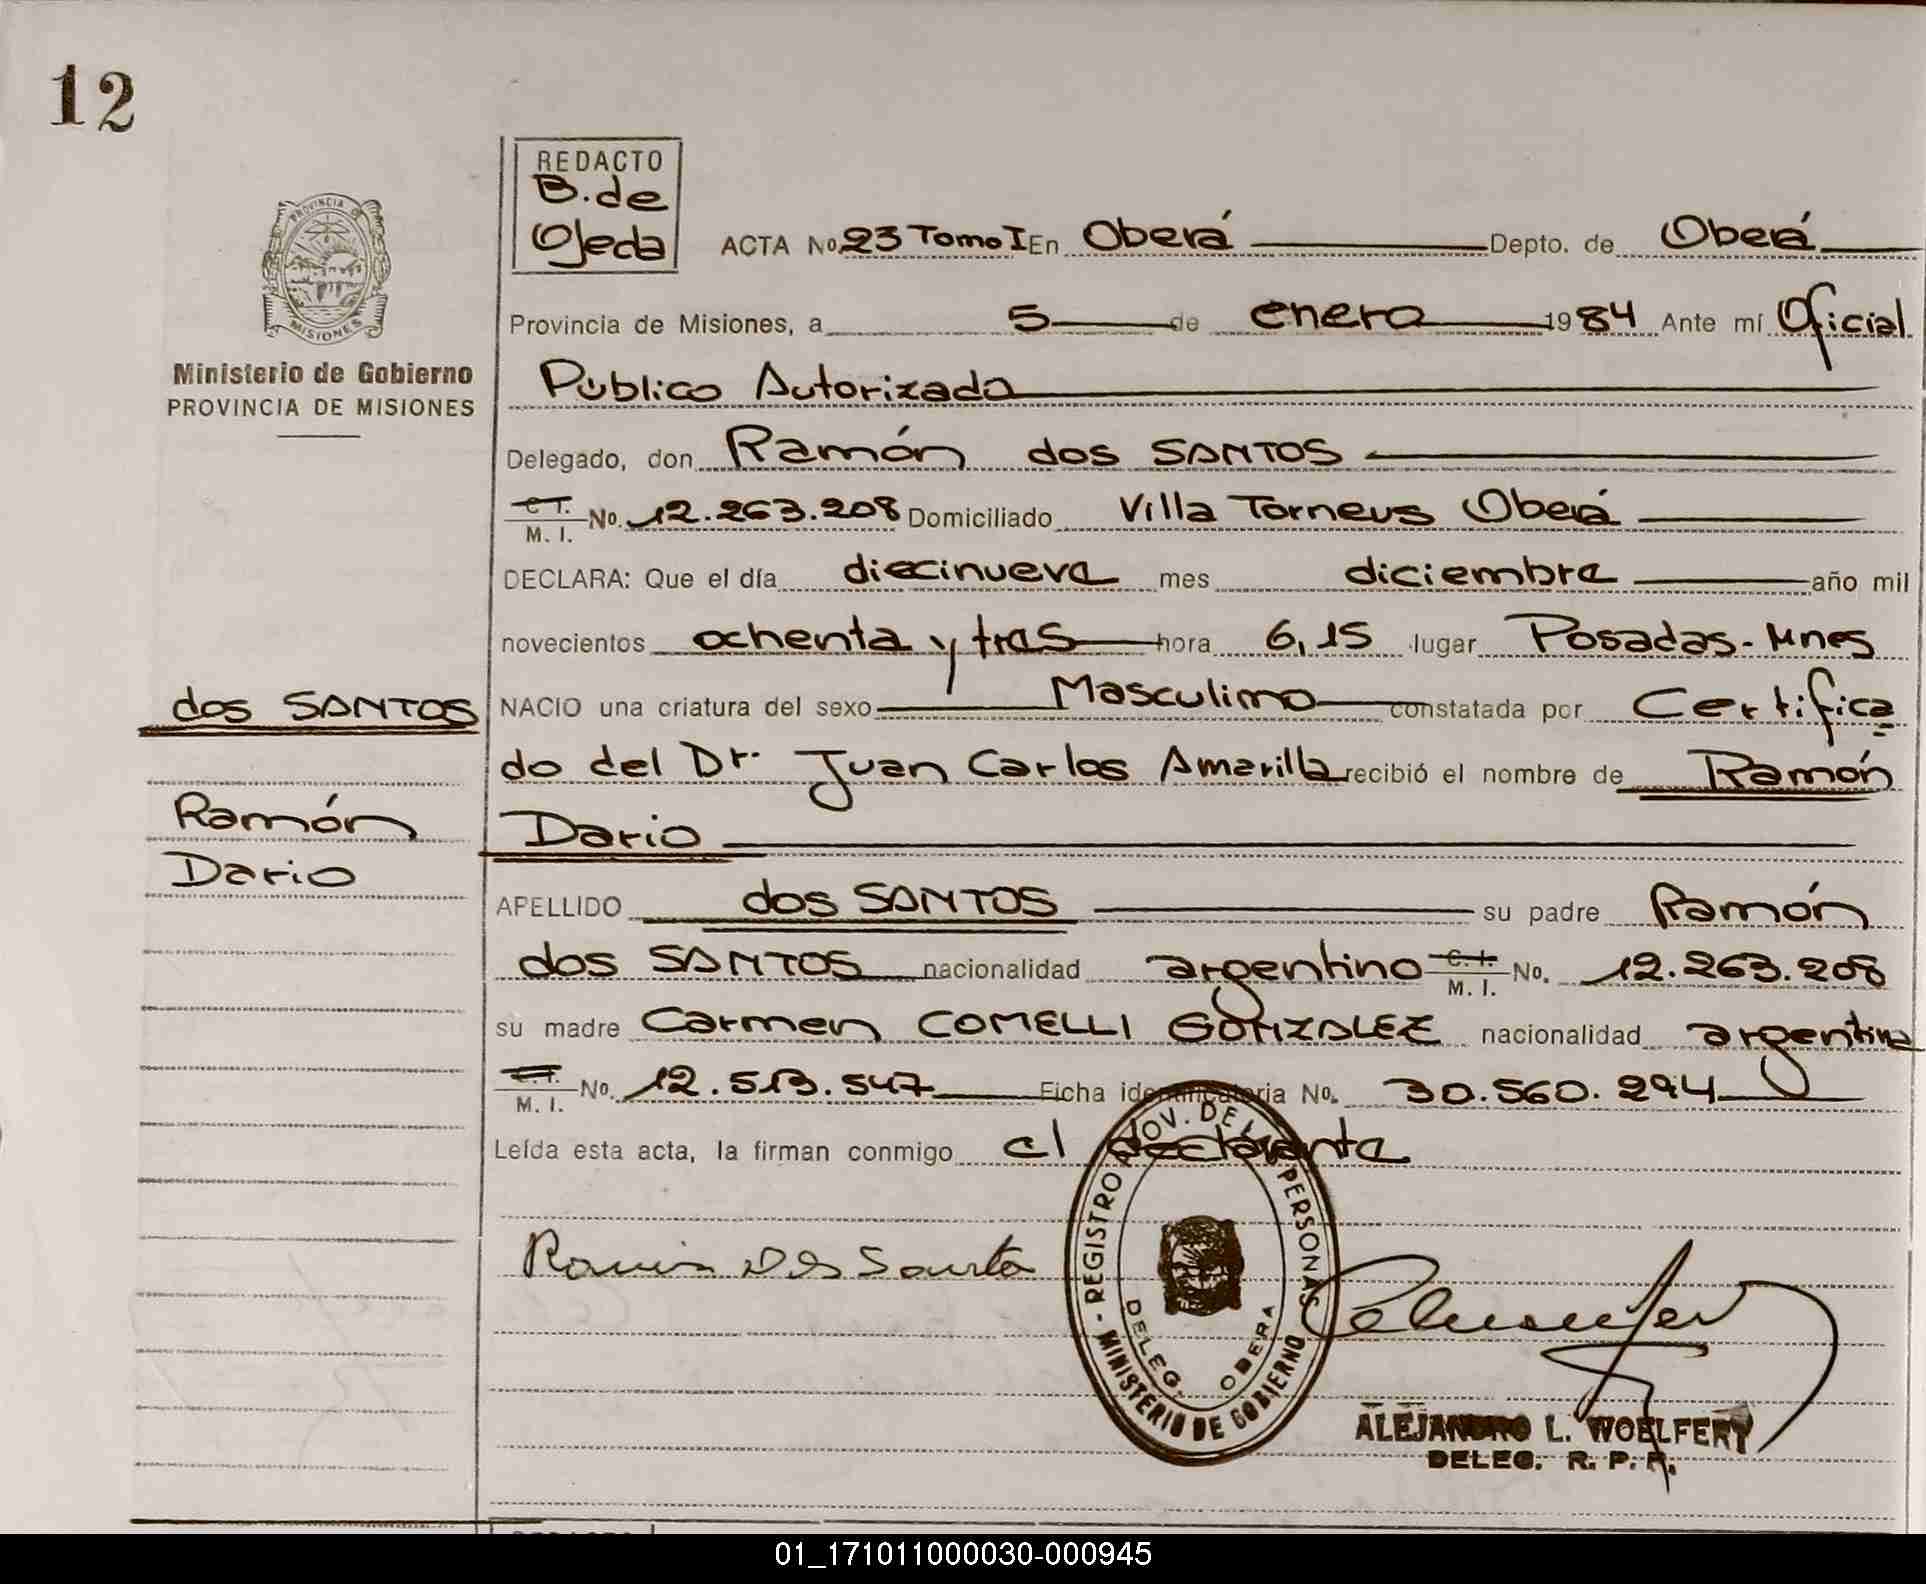 12
REDACTO
B. de
Ojeda
PROVINCIA DE
MISIONES
Ministerio de Gobierno
PROVINCIA DE MISIONES
ACTA No. 23 Tomo I En Oberá Depto. de Oberá
Provincia de Misiones, a 5 de enero 1984 Ante mí Oficial
Público Autorizado
Delegado, don Ramón dos SANTOS
C.I. M. I. No. 12.263.208 Domiciliado Villa Torneus Oberá
DECLARA: Que el día diecinueve mes diciembre año mil
novecientos ochenta y tres hora 6,15 lugar Posadas-Mnes
dos SANTOS
NACIO una criatura del sexo Masculino constatada por Certifica
do del Dr. Juan Carlos Amarilla recibió el nombre de Ramón
Ramón
Dario
Dario
APELLIDO dos SANTOS su padre Ramón
dos SANTOS nacionalidad argentino C.I. M. I. No. 12.263.208
su madre Carmen COMELLI GONZALEZ nacionalidad argentina
C.I. M. I. No. 12.513.547 Ficha identificatoria No. 30.560.294
Leída esta acta, la firman conmigo el declarante
Ramon Dos Santos
REGISTRO PROV. DE LAS PERSONAS - MINISTERIO DE GOBIERNO -
DELEG. OBERA
ALEJANDRO L. WOELFERT
DELEG. R. P. P.
01_171011000030-000945